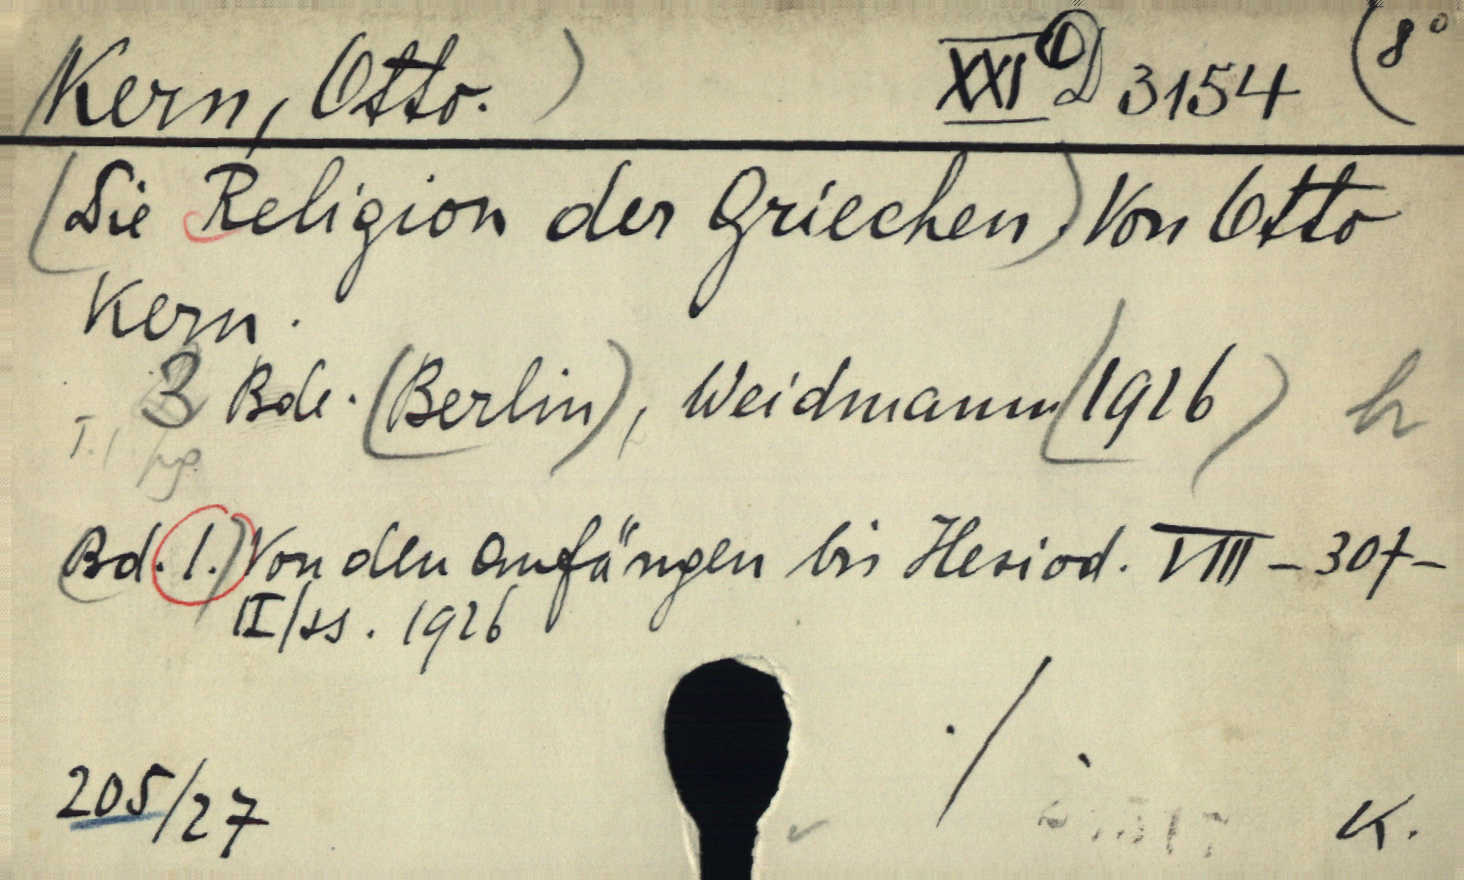 (Kern, Otto.) XXI D 3154 (8°
(Die Religion der Griechen). Von Otto
Kern.
3 Bde. (Berlin), Weidmann (1926) h
(Bd. 1.) Von den Anfängen bis Hesiod. VIII – 307 –
II/ss. 1926
./.
205/27 K.